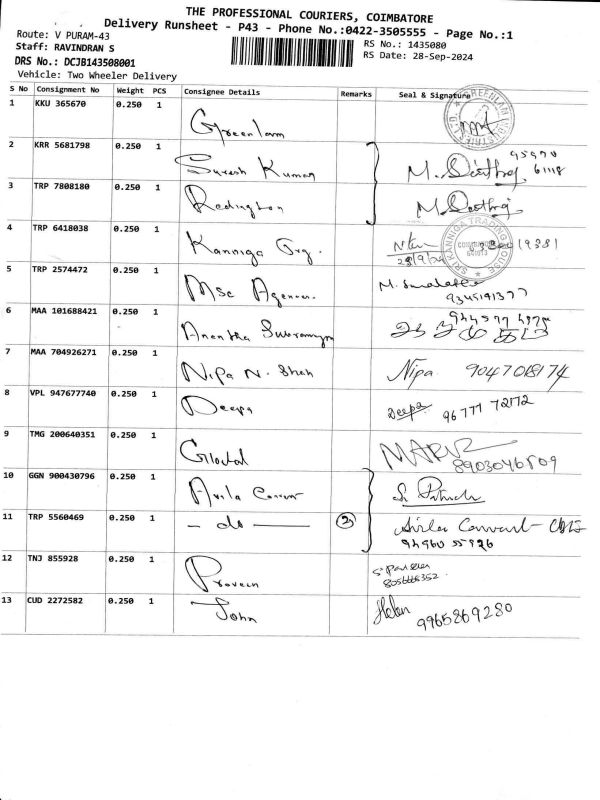 THE PROFESSIONAL COURIERS, COIMBATORE
Delivery Runsheet - P43 - Phone No.:0422-3505555 - Page No.:1
Route: V PURAM-43
Staff: RAVINDRAN S
RS No.: 1435080
DRS No.: DCJB143508001
RS Date: 28-Sep-2024
Vehicle: Two Wheeler Delivery
S No Consignment No Weight PCS Consignee Details Remarks Seal & Signature
1 KKU 365670 0.250 1 Greenlam
2 KRR 5681798 0.250 1 Suresh Kumar
3 TRP 7808180 0.250 1 Redington
4 TRP 6418038 0.250 1 Kanniga Trg.
SRI KANNIGA TRADING HOUSE
5 TRP 2574472 0.250 1 Msc Agencies 9345191377
6 MAA 101688421 0.250 1 Anantha
7 MAA 704926271 0.250 1 Nipa N. Shah Nipa 9047018174
8 VPL 947677740 0.250 1 Deepa Deepa 96777 72172
9 TMG 200640351 0.250 1 Global
10 GGN 900430796 0.250 1 Avila
11 TRP 5560469 0.250 1 - do - 2
12 TNJ 855928 0.250 1 Praveen
13 CUD 2272582 0.250 1 John Helen 9965869280